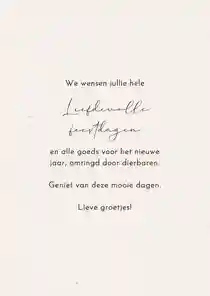 We wensen jullie hele
Liefdevolle
feestdagen
en alle goeds voor het nieuwe
jaar, omringd door dierbaren.
Geniet van deze mooie dagen.
Lieve groetjes!